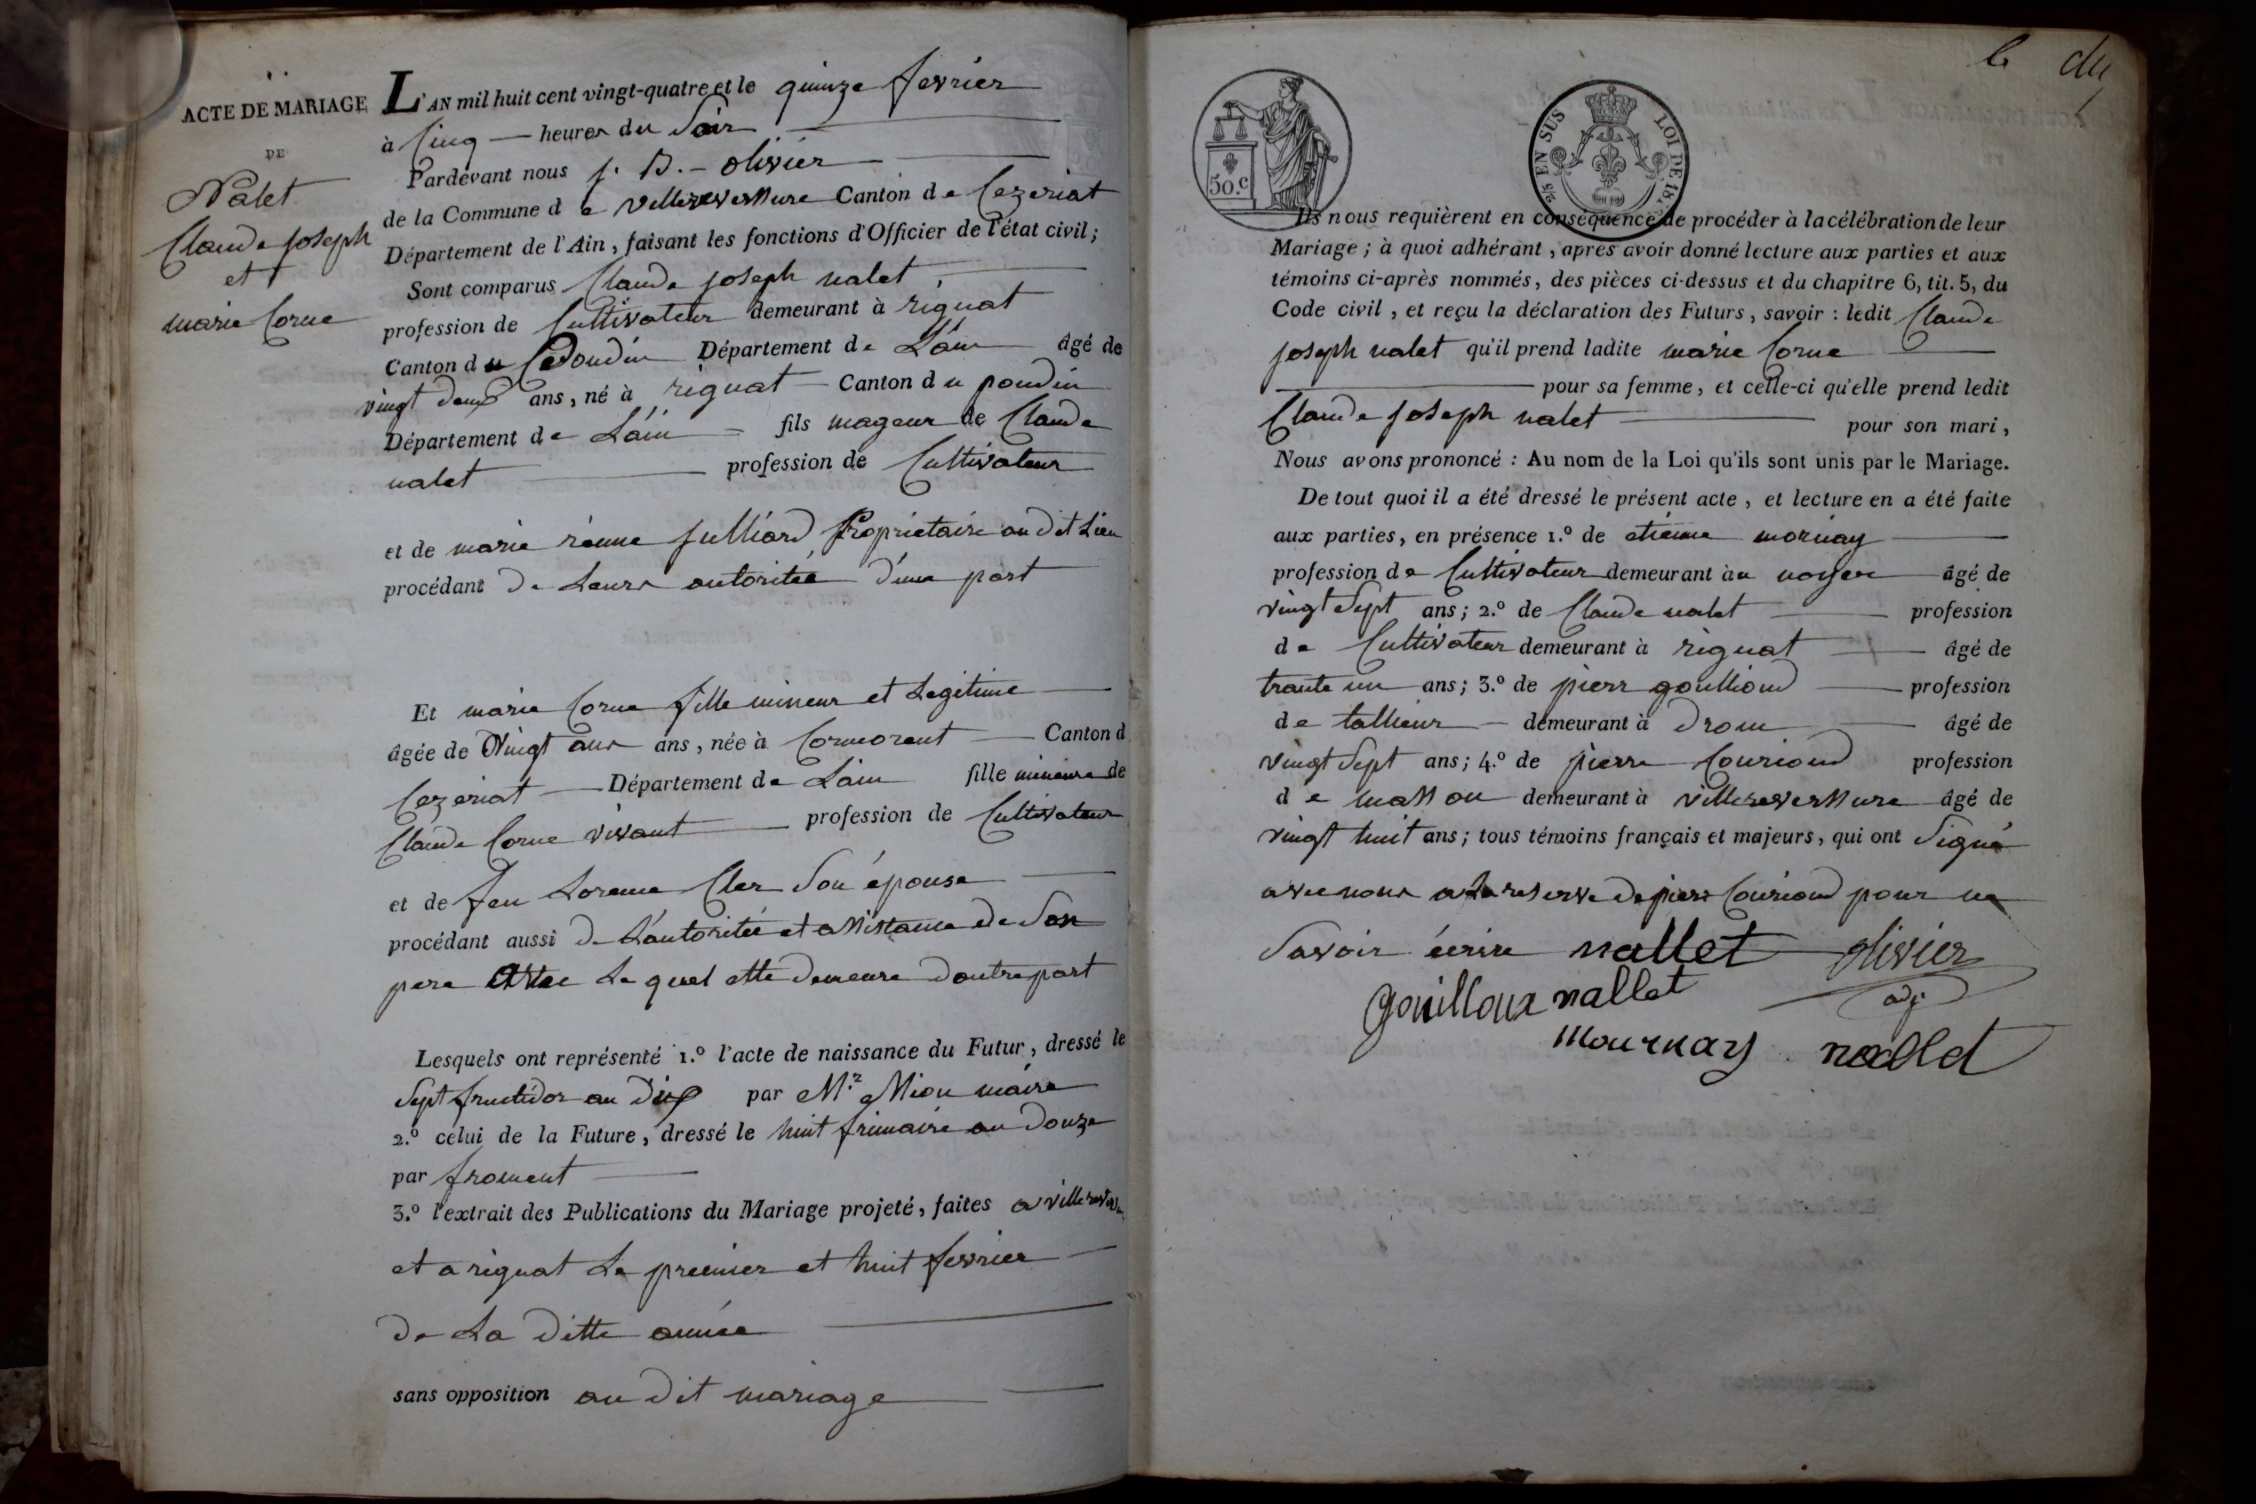 ACTE DE MARIAGE
DE
Nalet
Claude joseph
et
marie Corne
L'AN mil huit cent vingt-quatre et le quinze fevrier
à Cinq heures du Soir
Pardevant nous j. B. olivier
de la Commune de villereversure Canton de Cezeriat
Département de l'Ain, faisant les fonctions d'Officier de l'état civil;
Sont comparus Claude joseph nalet
profession de Cultivateur demeurant à rignat
Canton du Poudin Département de L'ain âgé de
vingt deux ans, né à rignat Canton du poudin
Département de L'ain fils mageur de Claude
nalet profession de Cultivateur
et de marie réine julliard Propriétaire au dit Lieu
procédant de Leurs autoritée d'une part
Et marie Corne fille mineur et Legitime
âgée de Vingt ans ans, née à Cormorent Canton d
Cezeriat Département de Lain fille mineure de
Claude Corne vivant profession de Cultivateur
et de feu Lorence Cler Son épouse
procédant aussi de L'autoritée et assistance de Son
pere avec Le quel elle demeure d'autre part
Lesquels ont représenté 1.º l'acte de naissance du Futur, dressé le
Sept fructidor an dix par M.r Mion maire
2.º celui de la Future, dressé le huit frimaire an douze
par froment
3.º l'extrait des Publications du Mariage projeté, faites a villerevers
et a rignat Le premier et huit fevrier
de La ditte année
sans opposition au dit mariage
le du
50.c
2/5 EN SUS LOI DE 18
Ils nous requièrent en conséquence de procéder à la célébration de leur
Mariage; à quoi adhérant, après avoir donné lecture aux parties et aux
témoins ci-après nommés, des pièces ci-dessus et du chapitre 6, tit. 5, du
Code civil, et reçu la déclaration des Futurs, savoir: ledit Claude
joseph nalet qu'il prend ladite marie Corne
pour sa femme, et celle-ci qu'elle prend ledit
Claude joseph nalet pour son mari,
Nous avons prononcé: Au nom de la Loi qu'ils sont unis par le Mariage.
De tout quoi il a été dressé le présent acte, et lecture en a été faite
aux parties, en présence 1.º de etiénne mornay
profession de Cultivateur demeurant au noyer âgé de
vingt Sept ans; 2.º de Claude nalet profession
de Cultivateur demeurant à rignat âgé de
trante un ans; 3.º de pierr goulliond profession
de tallieur demeurant à drom âgé de
vingt Sept ans; 4.º de pierre Couriond profession
de masson demeurant à villereversure âgé de
vingt huit ans; tous témoins français et majeurs, qui ont Signé
avec nous a La reserve de pierr Couriond pour ne
Savoir écrire nallet olivier
gouilloux nallet adj
mournay nallet